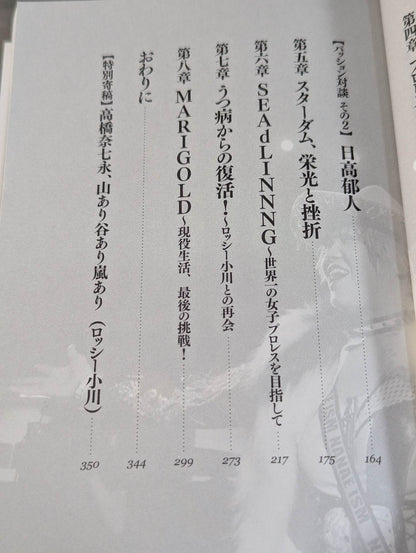 【パッション対談 その2】日高郁人 164
第五章 スターダム、栄光と挫折 175
第六章 SEAdLINNNG~世界一の女子プロレスを目指して 217
第七章 うつ病からの復活!~ロッシー小川との再会 273
第八章 MARIGOLD~現役生活、最後の挑戦! 299
おわりに 344
【特別寄稿】高橋奈七永、山あり谷あり嵐あり(ロッシー小川) 350